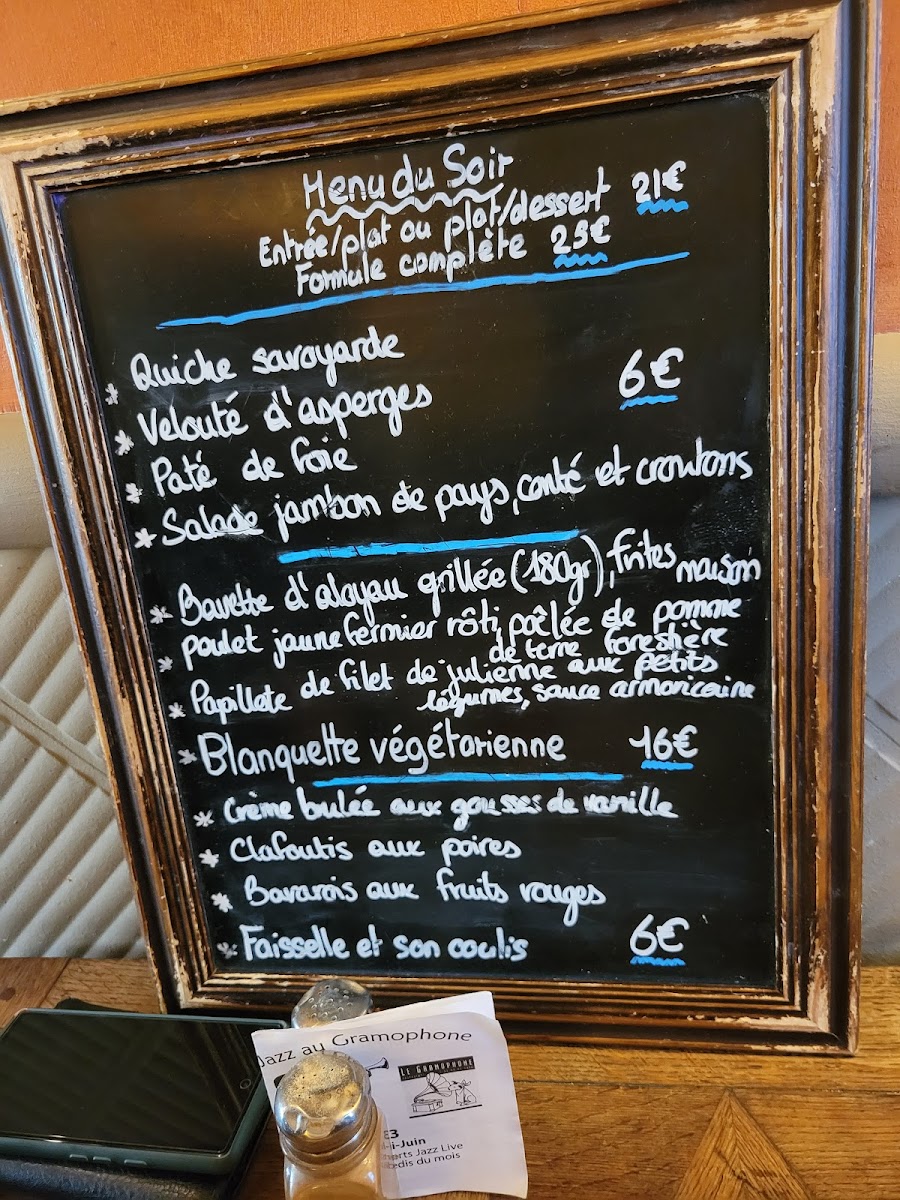 Menu du Soir
Entrée/plat ou plat/dessert 21€
Formule complète 25€
* Quiche savoyarde
* Velouté d'asperges 6€
* Paté de foie
* Salade jambon de pays, comté et croutons
* Bavette d'aloyau grillée (180gr), frites maison
* poulet jaune fermier rôti, poêlée de pomme
de terre forestière
* Papillote de filet de julienne aux petits
légumes, sauce armoricaine
* Blanquette végétarienne 16€
* Crème bulée aux gousses de vanille
* Clafoutis aux poires
* Bavarois aux fruits rouges
* Faisselle et son coulis 6€
Jazz au Gramophone
LE GRAMOPHONE
-Juin
Jazz Live
du mois